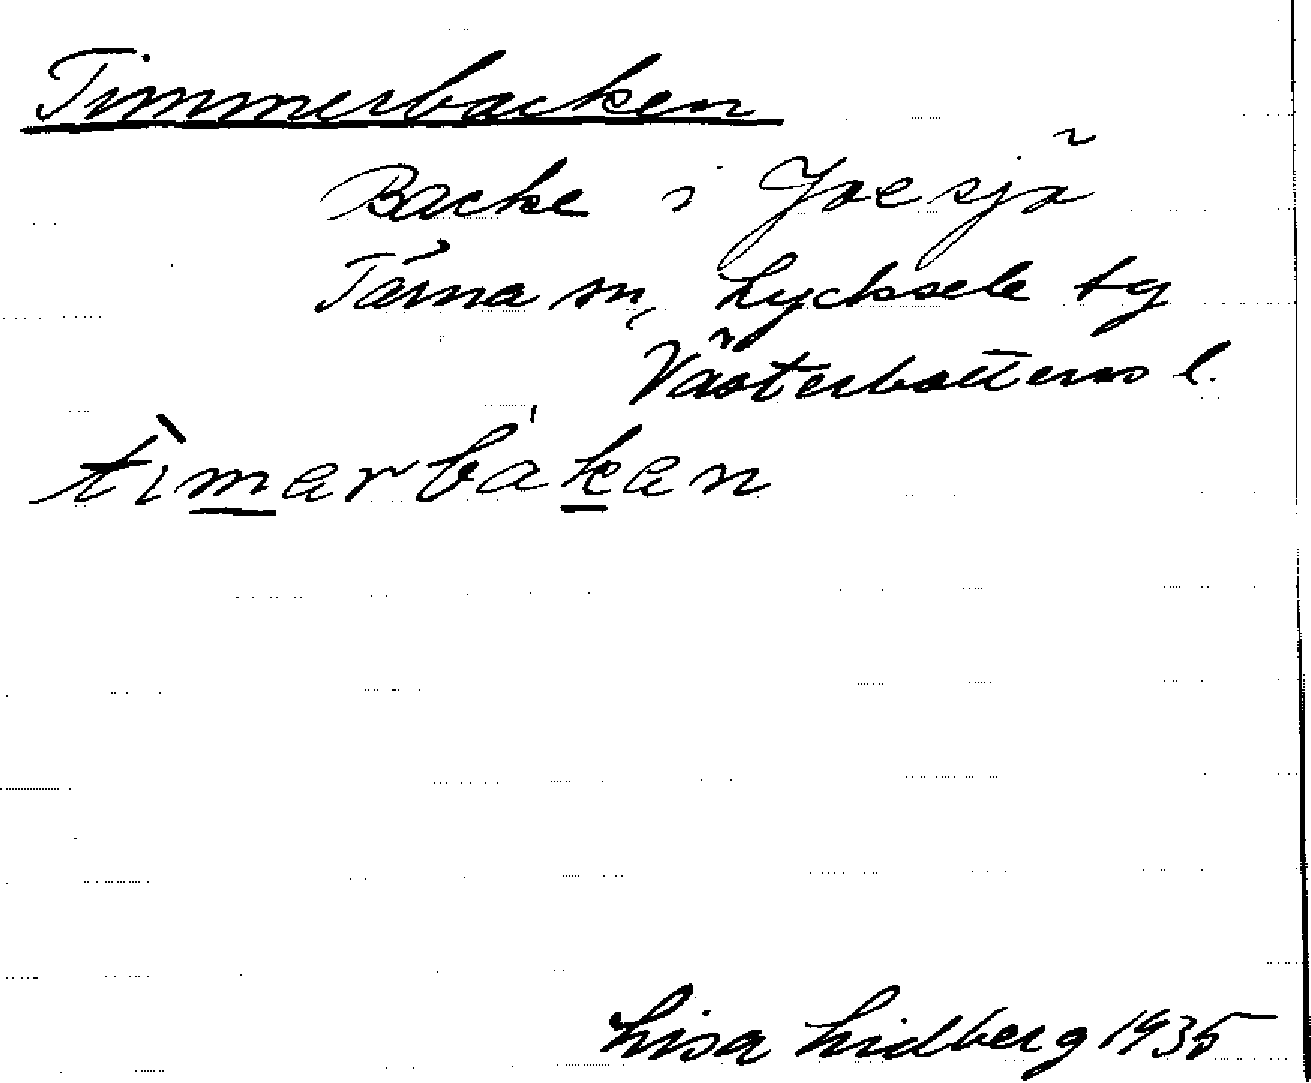 Timmerbacken
Backe i Joesjö
Tärna sn, Lycksele tg
Västerbottens l.
tìmarbákan
Lisa Lidberg 1935